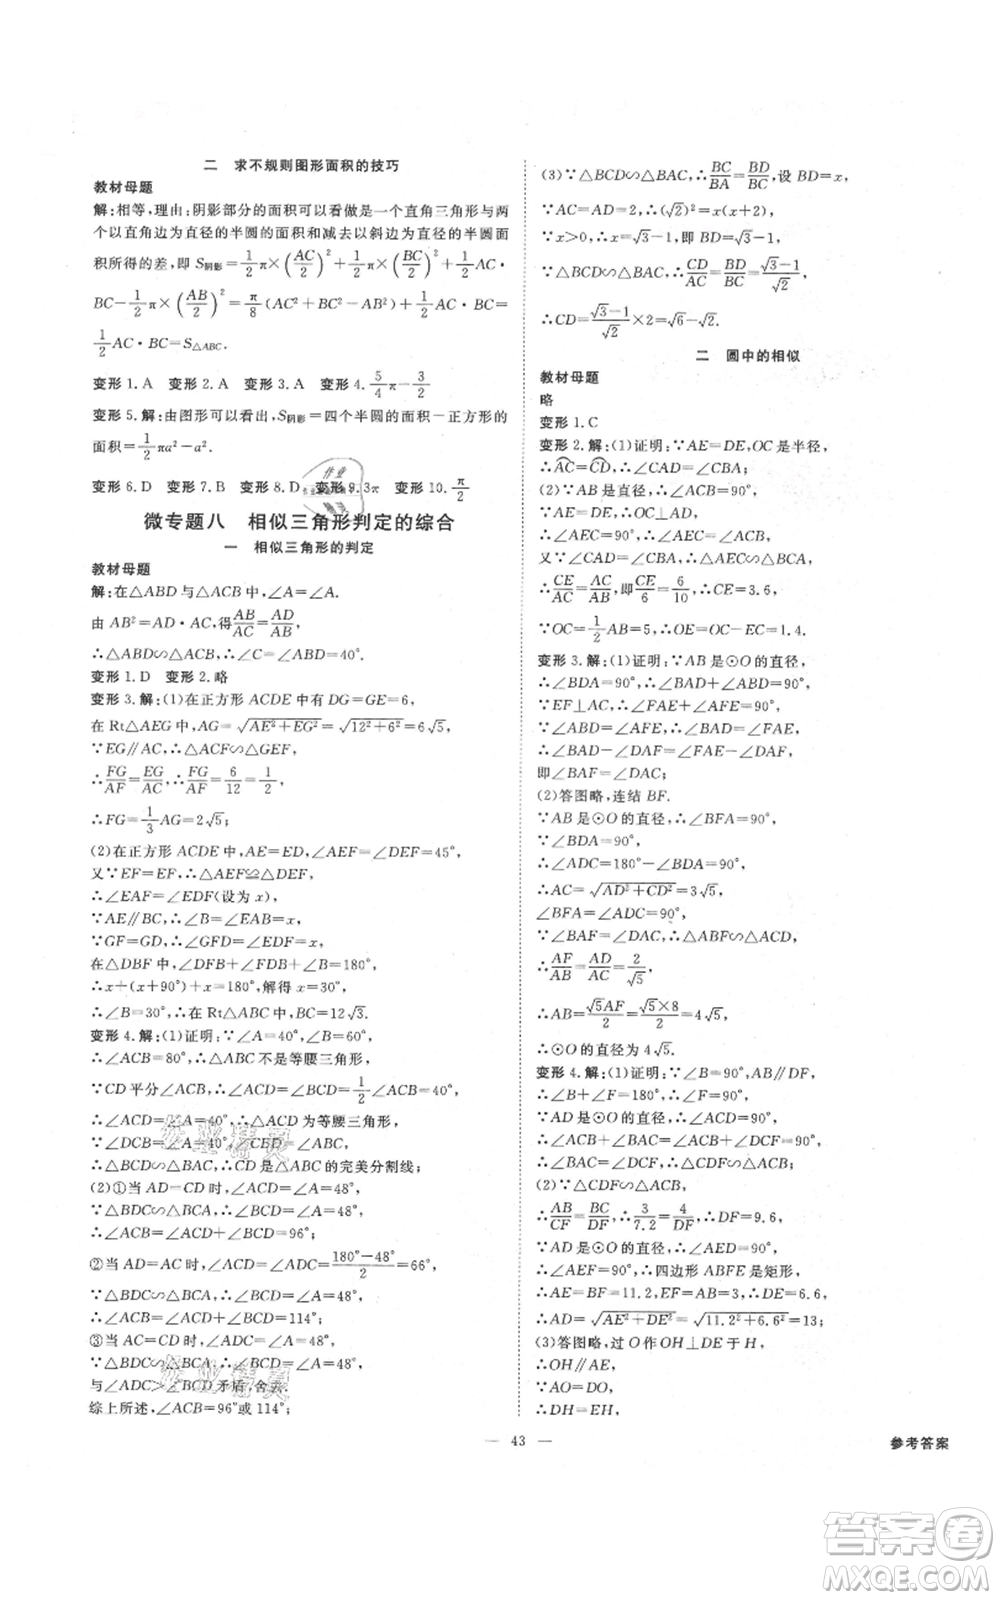 二 求不规则图形面积的技巧
教材母题
解:相等,理由:阴影部分的面积可以看做是一个直角三角形与两
个以直角边为直径的半圆的面积和减去以斜边为直径的半圆面
积所得的差,即 S阴影=1/2π×(AC/2)²+1/2π×(BC/2)²+1/2AC·
BC-1/2π×(AB/2)²=π/8(AC²+BC²-AB²)+1/2AC·BC=
1/2AC·BC=S△ABC.
变形 1.A 变形 2.A 变形 3.A 变形 4.5/4π-3/2
变形 5.解:由图形可以看出,S阴影=四个半圆的面积-正方形的
面积=1/2πa²-a².
变形 6.D 变形 7.B 变形 8.D 变形 9.3π 变形 10.π/2
微专题八 相似三角形判定的综合
一 相似三角形的判定
教材母题
解:在△ABD与△ACB中,∠A=∠A.
由 AB²=AD·AC,得AB/AC=AD/AB,
∴△ABD∽△ACB,∴∠C=∠ABD=40°.
变形 1.D 变形 2.略
变形 3.解:(1)在正方形 ACDE 中有 DG=GE=6,
在 Rt△AEG 中,AG=√(AE²+EG²)=√(12²+6²)=6√5,
∵EG∥AC,∴△ACF∽△GEF,
∴FG/AF=EG/AC,∴FG/AF=6/12=1/2,
∴FG=1/3AG=2√5;
(2)在正方形 ACDE 中,AE=ED,∠AEF=∠DEF=45°,
又∵EF=EF,∴△AEF≌△DEF,
∴∠EAF=∠EDF(设为 x),
∵AE∥BC,∴∠B=∠EAB=x,
∵GF=GD,∴∠GFD=∠EDF=x,
在△DBF 中,∠DFB+∠FDB+∠B=180°,
∴x+(x+90°)+x=180°,解得 x=30°,
∴∠B=30°,∴在 Rt△ABC 中,BC=12√3.
变形 4.解:(1)证明:∵∠A=40°,∠B=60°,
∴∠ACB=80°,∴△ABC 不是等腰三角形,
∵CD平分∠ACB,∴∠ACD=∠BCD=1/2∠ACB=40°,
∴∠ACD=∠A=40°,∴△ACD 为等腰三角形,
∵∠DCB=∠A=40°,∠CBD=∠ABC,
∴△BCD∽△BAC,∴CD是△ABC 的完美分割线;
(2)①当 AD=CD 时,∠ACD=∠A=48°,
∵△BDC∽△BCA,∴∠BCD=∠A=48°,
∴∠ACB=∠ACD+∠BCD=96°;
②当 AD=AC 时,∠ACD=∠ADC=(180°-48°)/2=66°,
∵△BDC∽△BCA,∴∠BCD=∠A=48°,
∴∠ACB=∠ACD+∠BCD=114°;
③当 AC=CD 时,∠ADC=∠A=48°,
∵△BDC∽△BCA,∴∠BCD=∠A=48°,
与∠ADC>∠BCD矛盾,舍去.
综上所述,∠ACB=96°或 114°;
(3)∵△BCD∽△BAC,∴BC/BA=BD/BC,设 BD=x,
∵AC=AD=2,∴(√2)²=x(x+2),
∵x>0,∴x=√3-1,即 BD=√3-1,
∵△BCD∽△BAC,∴CD/AC=BD/BC=(√3-1)/√2,
∴CD=(√3-1)/√2×2=√6-√2.
二 圆中的相似
教材母题
略
变形 1.C
变形 2.解:(1)证明:∵AE=DE,OC是半径,
∴AC=CD,∴∠CAD=∠CBA;
(2)∵AB 是直径,∴∠ACB=90°,
∵AE=DE,∴OC⊥AD,
∴∠AEC=90°,∴∠AEC=∠ACB,
又∵∠CAD=∠CBA,∴△AEC∽△BCA,
∴CE/AC=AC/AB,即CE/6=6/10,∴CE=3.6,
∵OC=1/2AB=5,∴OE=OC-EC=1.4.
变形 3.解:(1)证明:∵AB 是⊙O 的直径,
∴∠BDA=90°,∴∠ABD+∠BAD=90°,
∵EF⊥AC,∴∠FAE+∠AFE=90°,
∵∠ABD=∠AFE,∴∠BAD=∠FAE,
∴∠BAD-∠DAF=∠FAE-∠DAF,
即∠BAF=∠DAC.
(2)答图略,连结 BF.
∵AB 是⊙O 的直径,∴∠BFA=90°,
∵∠BDA=90°,
∴∠ADC=180°-∠BDA=90°,
∴AC=√(AD²+CD²)=3√5,
∠BFA=∠ADC=90°,
∠BAF=∠DAC,∴△ABF∽△ACD,
∴AF/AB=AD/AC=2/√5,
∴AB=√5AF/2=(√5×8)/2=4√5,
∴⊙O 的直径为 4√5.
变形 4.解:(1)证明:∵∠B=90°,AB∥DF,
∴∠B+∠F=180°,∴∠F=90°,
∵AD 是⊙O 的直径,∴∠ACD=90°,
∴∠BAC+∠ACB=∠ACB+∠DCF=90°,
∴∠BAC=∠DCF,∴△ABC∽△CFD;
(2)∵△CDF∽△ACB,
∴AB/CF=BC/DF,∴3/7.2=4/DF,∴DF=9.6,
∵AD是⊙O 的直径,∴∠AED=90°,
∵∠B=∠F=90°,∴四边形 ABFE 是矩形,
∴AE=BF=11.2,EF=AB=3,∴DE=6.6,
∴AD=√(AE²+DE²)=√(11.2²+6.6²)=13;
(3)答图略,过 O 作 OH⊥DE 于 H,
∴OH∥AE,
∵AO=DO,
∴DH=EH,
— 43 —
参考答案
作业
精灵
作业精灵
作业精灵
答案卷
MXQE.COM